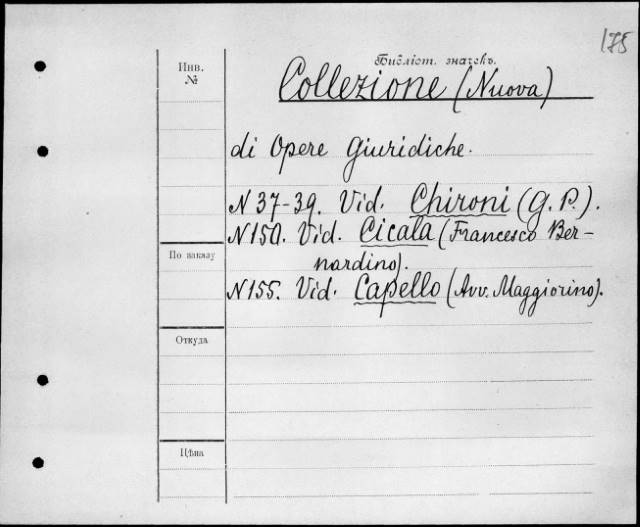 175
Инв.
№
Библіот. значекъ.
Collezione (Nuova)
di Opere Giuridiche.
N 37-39. Vid. Chironi (G. P.).
N 150. Vid. Cicala (Francesco Ber-
nardino).
По заказу
N 155. Vid. Capello (Avv. Maggiorino).
Откуда
Цѣна